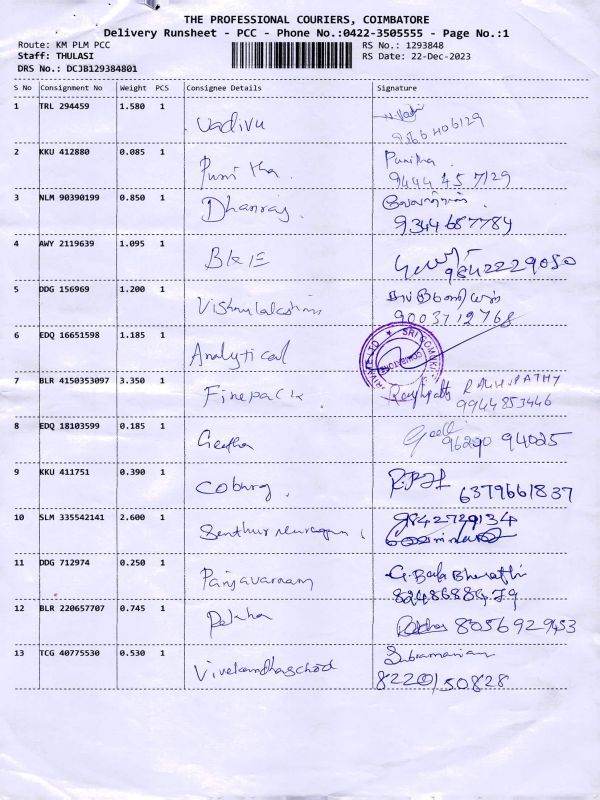 THE PROFESSIONAL COURIERS, COIMBATORE
Delivery Runsheet - PCC - Phone No.:0422-3505555 - Page No.:1
Route: KM PLM PCC RS No.: 1293848
Staff: THULASI RS Date: 22-Dec-2023
DRS No.: DCJB129384801
S No Consignment No Weight PCS Consignee Details Signature
1 TRL 294459 1.580 1 Vadivu
2 KKU 412880 0.085 1 Punitha Punitha
9444 45 7129
3 NLM 90390199 0.850 1 Dhanraj
9344687784
4 AWY 2119639 1.095 1 BKE
9842229050
5 DDG 156969 1.200 1 Vishnulakshmi
9003712768
6 EDQ 16651598 1.185 1 Analytical
7 BLR 4150353097 3.350 1 Finepack RAGHUPATHY
9944853446
8 EDQ 18103599 0.185 1 Geetha
96290 94025
9 KKU 411751 0.390 1 Coburg
6379661837
10 SLM 335542141 2.600 1 Senthur Murugan 9842729134
11 DDG 712974 0.250 1 Panjavarnam G. Bala Bharathi
8248688479
12 BLR 220657707 0.745 1 Rekha Rekha 8056929433
13 TCG 40775530 0.530 1 Subramanian
8220150828